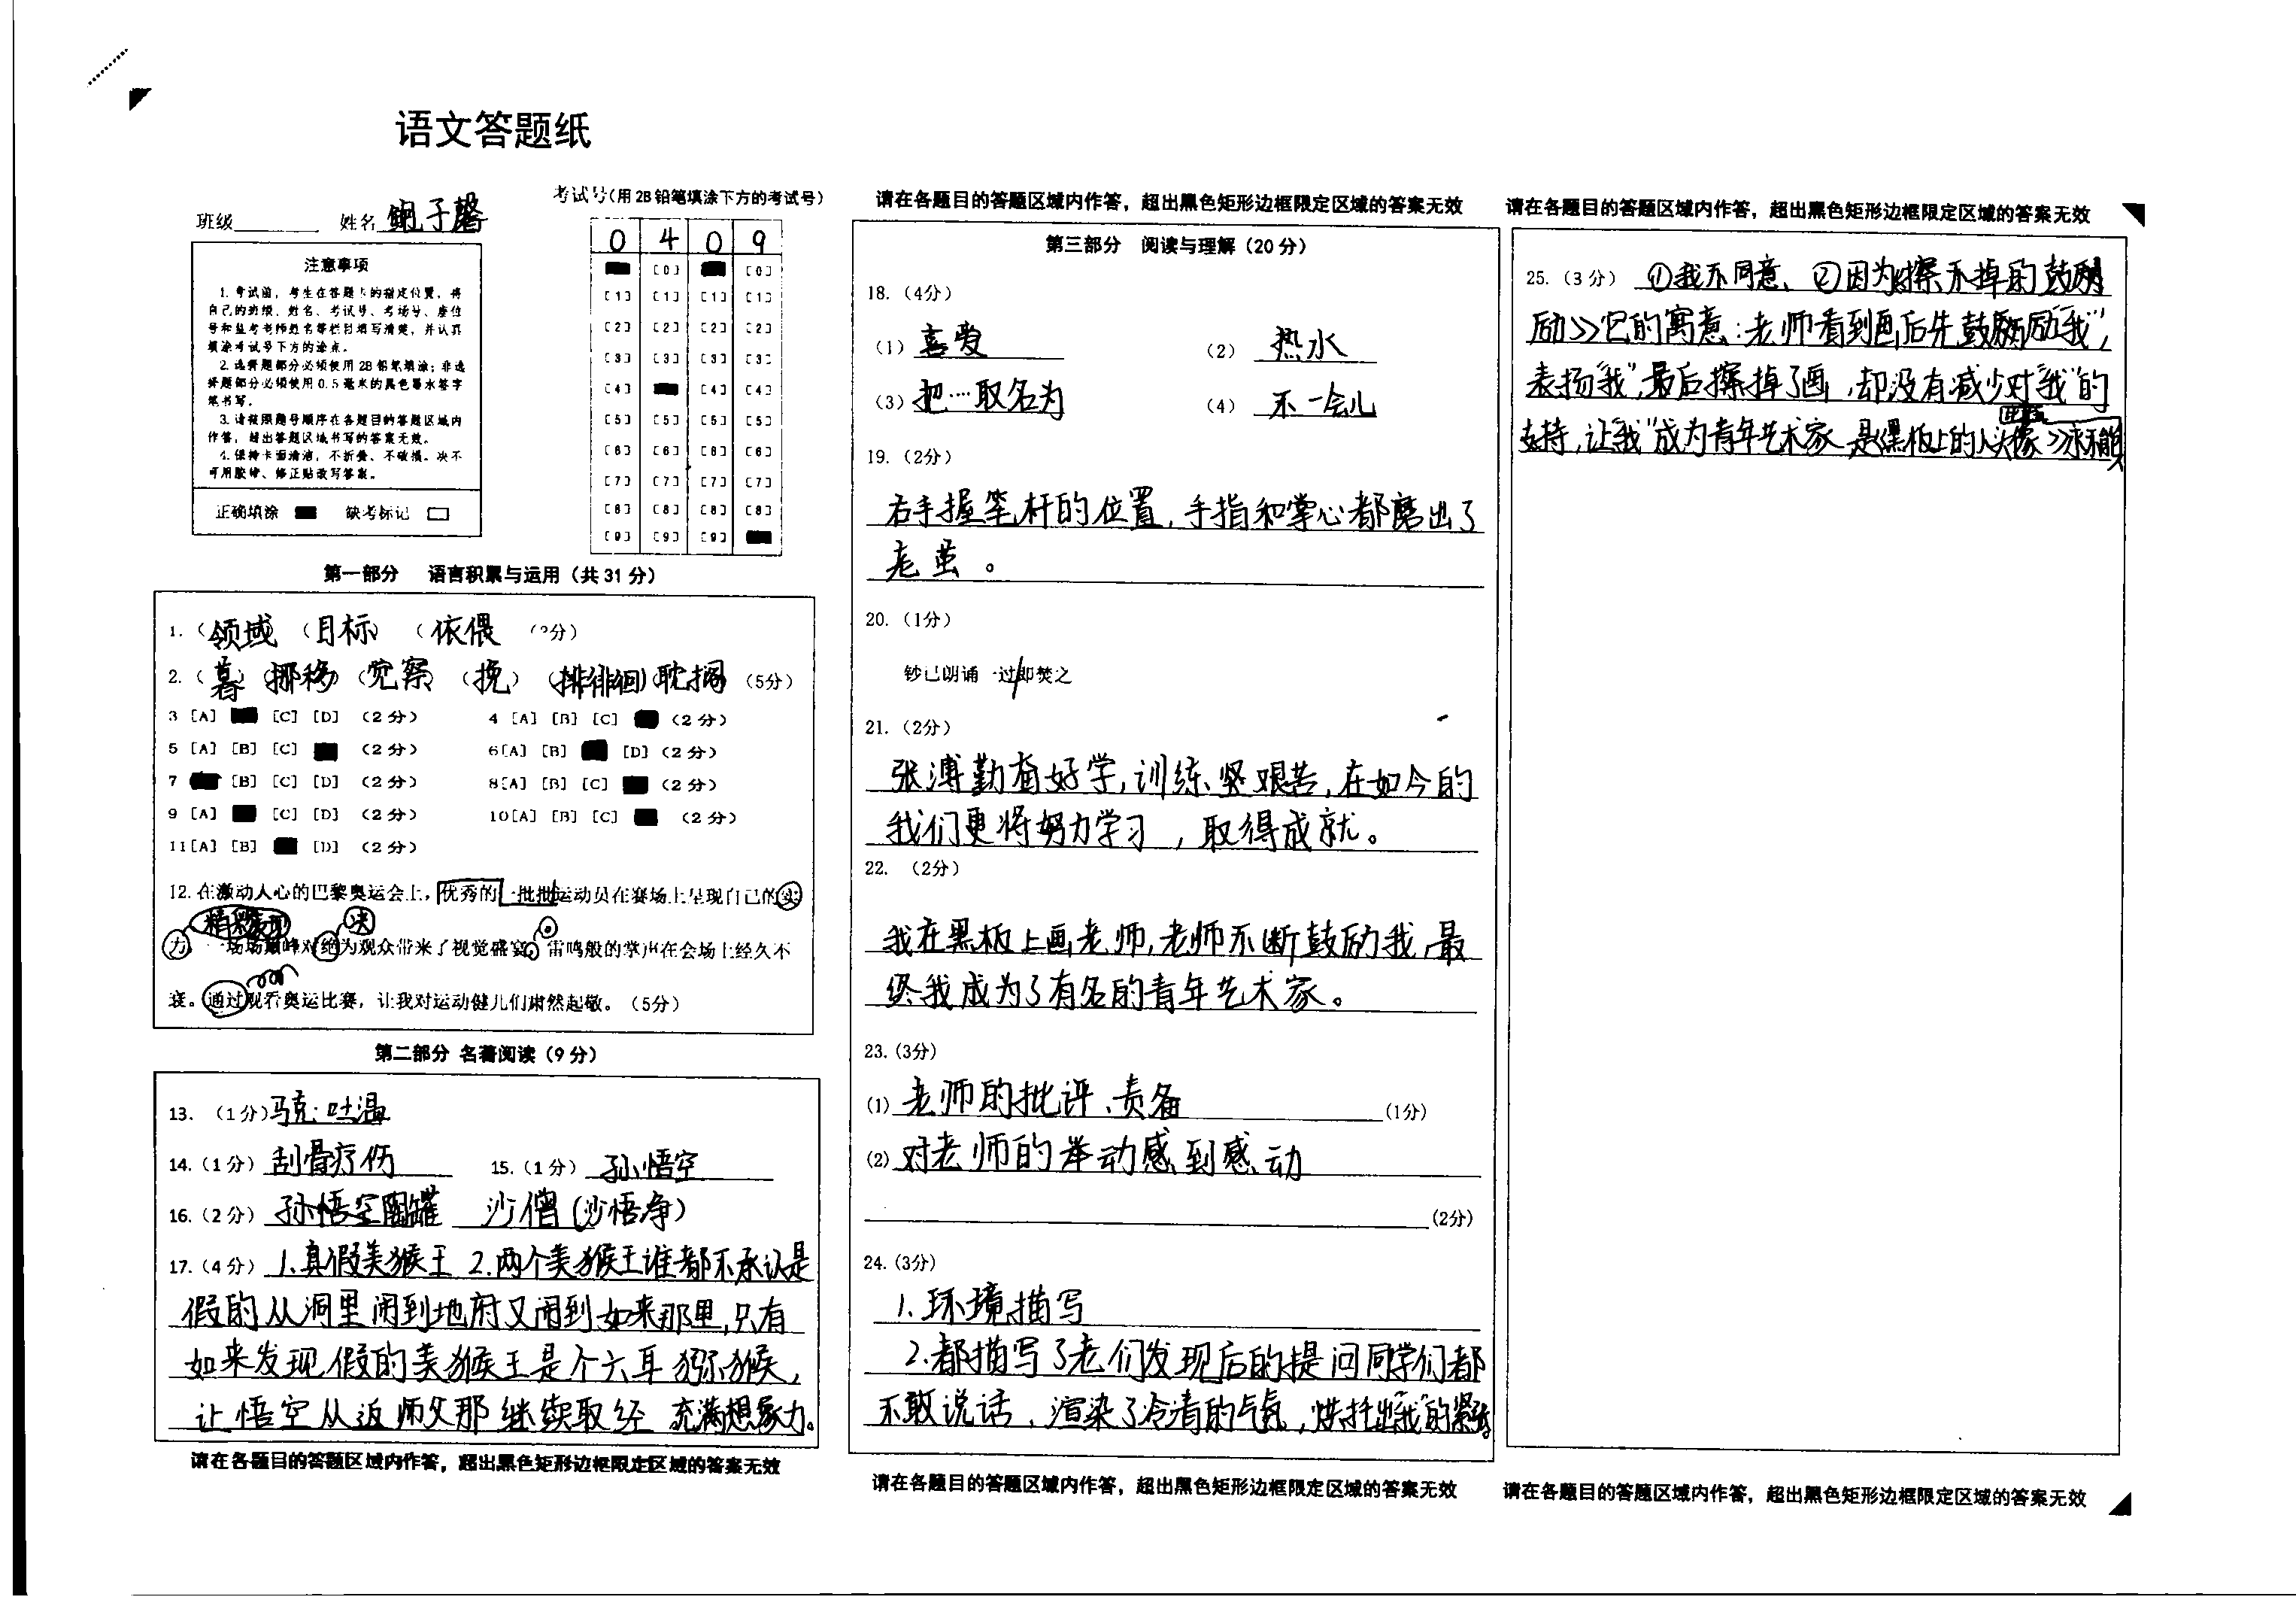 语文答题纸
班级 姓名 鲍子馨
考试号(用2B铅笔填涂下方的考试号)
0 4 0 9
[0] [0]
[1] [1] [1] [1]
[2] [2] [2] [2]
[3] [3] [3] [3]
[4] [4] [4]
[5] [5] [5] [5]
[6] [6] [6] [6]
[7] [7] [7] [7]
[8] [8] [8] [8]
[9] [9] [9]
注意事项
1. 考试前，考生在答题卡的指定位置，将
自己的班级、姓名、考试号、考场号、座位
号和监考老师姓名等栏目填写清楚，并认真
填涂考试号下方的涂点。
2. 选择题部分必须使用2B铅笔填涂；非选
择题部分必须使用0.5毫米的黑色墨水签字
笔书写。
3. 请按照题号顺序在各题目的答题区域内
作答，超出答题区域书写的答案无效。
4. 保持卡面清洁，不折叠、不破损。决不
可用胶带、修正贴改写答案。
正确填涂 缺考标记
第一部分 语言积累与运用（共31分）
1.（领域）（目标）（依偎 分）
2.（暮）（挪移）（觉察）（挽）（徘徊）（耽搁（5分）
3 [A] [C] [D] （2分） 4 [A] [B] [C] （2分）
5 [A] [B] [C] （2分） 6[A] [B] [D]（2分）
7 [B] [C] [D] （2分） 8[A] [B] [C] （2分）
9 [A] [C] [D] （2分） 10[A] [B] [C] （2分）
11[A] [B] [D] （2分）
12. 在激动人心的巴黎奥运会上，优秀的一批批运动员在赛场上呈现自己的实
力。一场场巅峰对绝为观众带来了视觉盛宴，雷鸣般的掌声在会场上经久不
决 。
衰。通过观看奥运比赛，让我对运动健儿们肃然起敬。（5分）
第二部分 名著阅读（9分）
13. （1分）马克·吐温
14.（1分）刮骨疗伤 15.（1分）孙悟空
16.（2分）孙悟空 沙僧(沙悟净)
17.（4分）1.真假美猴王 2.两个美猴王谁都不承认是
假的从洞里闹到地府又闹到如来那里,只有
如来发现假的美猴王是个六耳猕猴,
让悟空从返师父那继续取经 充满想象力。
请在各题目的答题区域内作答，超出黑色矩形边框限定区域的答案无效
请在各题目的答题区域内作答，超出黑色矩形边框限定区域的答案无效
第三部分 阅读与理解（20分）
18.（4分）
（1）喜爱 （2）热水
（3）把…取名为 （4）不一会儿
19.（2分）
右手握笔杆的位置,手指和掌心都磨出了
老茧。
20.（1分）
钞已朗诵一过/即焚之
21.（2分）
张溥勤奋好学,训练 艰苦,在如今的
我们更将努力学习,取得成就。
22. （2分）
我在黑板上画老师,老师不断鼓励我,最
终我成为了有名的青年艺术家。
23.（3分）
(1) 老师的批评、责备 (1分)
(2) 对老师的举动感到感动
(2分)
24.（3分）
1.环境描写
2.都描写了老们发现后的提问同学们都
不敢说话,渲染了冷清的气氛,烘托出“我”的紧张。
请在各题目的答题区域内作答，超出黑色矩形边框限定区域的答案无效
请在各题目的答题区域内作答，超出黑色矩形边框限定区域的答案无效
25.（3分）①我不同意、②因为《擦不掉的鼓
励》它的寓意:老师看到画后先鼓励“我”,
表扬“我”,最后擦掉了画,却没有减少对“我”的
支持,让“我”成为青年艺术家 是《黑板上的人头像》永不能
请在各题目的答题区域内作答，超出黑色矩形边框限定区域的答案无效